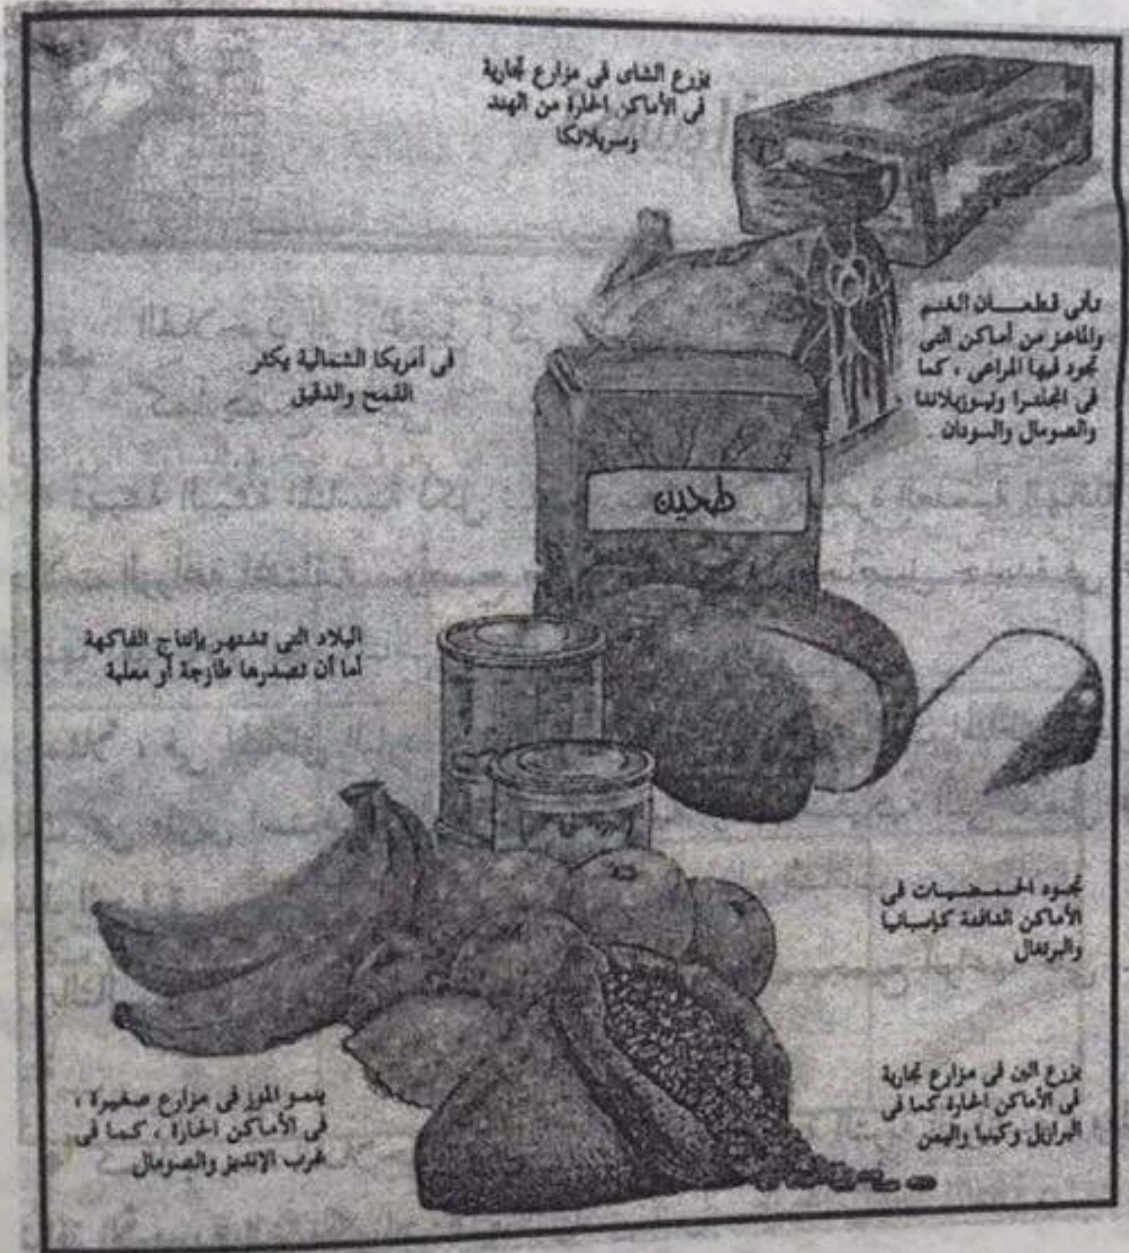 يزرع الشاى فى مزارع تجارية
فى الأماكن الحارة من الهند
وسريلانكا
تأتى قطعــان الغنم
والماعز من أماكن التى
تجود فيها المراعى ، كما
فى انجلترا ونيوزيلاندا
والصومال والسودان .
فى أمريكا الشمالية يكثر
القمح والدقيق
طحين
البلاد التى تشتهر بإنتاج الفاكهة
أما أن تصدرها طازجة أو معلبة
تجود الحمـضـيـات فى
الأماكن الدافئة كإسبانيا
والبرتغال
يزرع البن فى مزارع تجارية
فى الأماكن الحارة كما فى
البرازيل وكينيا واليمن
ينمو الموز فى مزارع صغيرة ،
فى الأماكن الحارة ، كما فى
غرب الإنديز والصومال